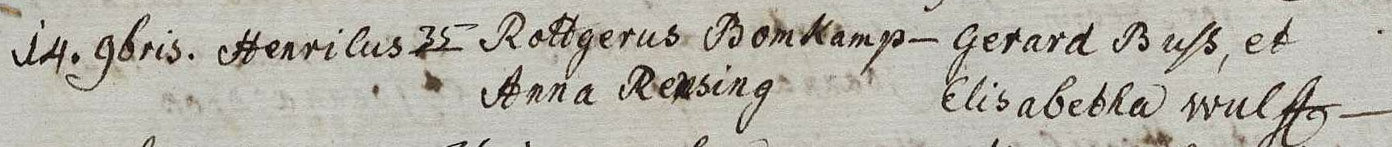 14. 9bris. Henricus 35 Rottgerus Bomkamp – Gerard Buß, et
Anna Rensing Elisabetha Wulff –